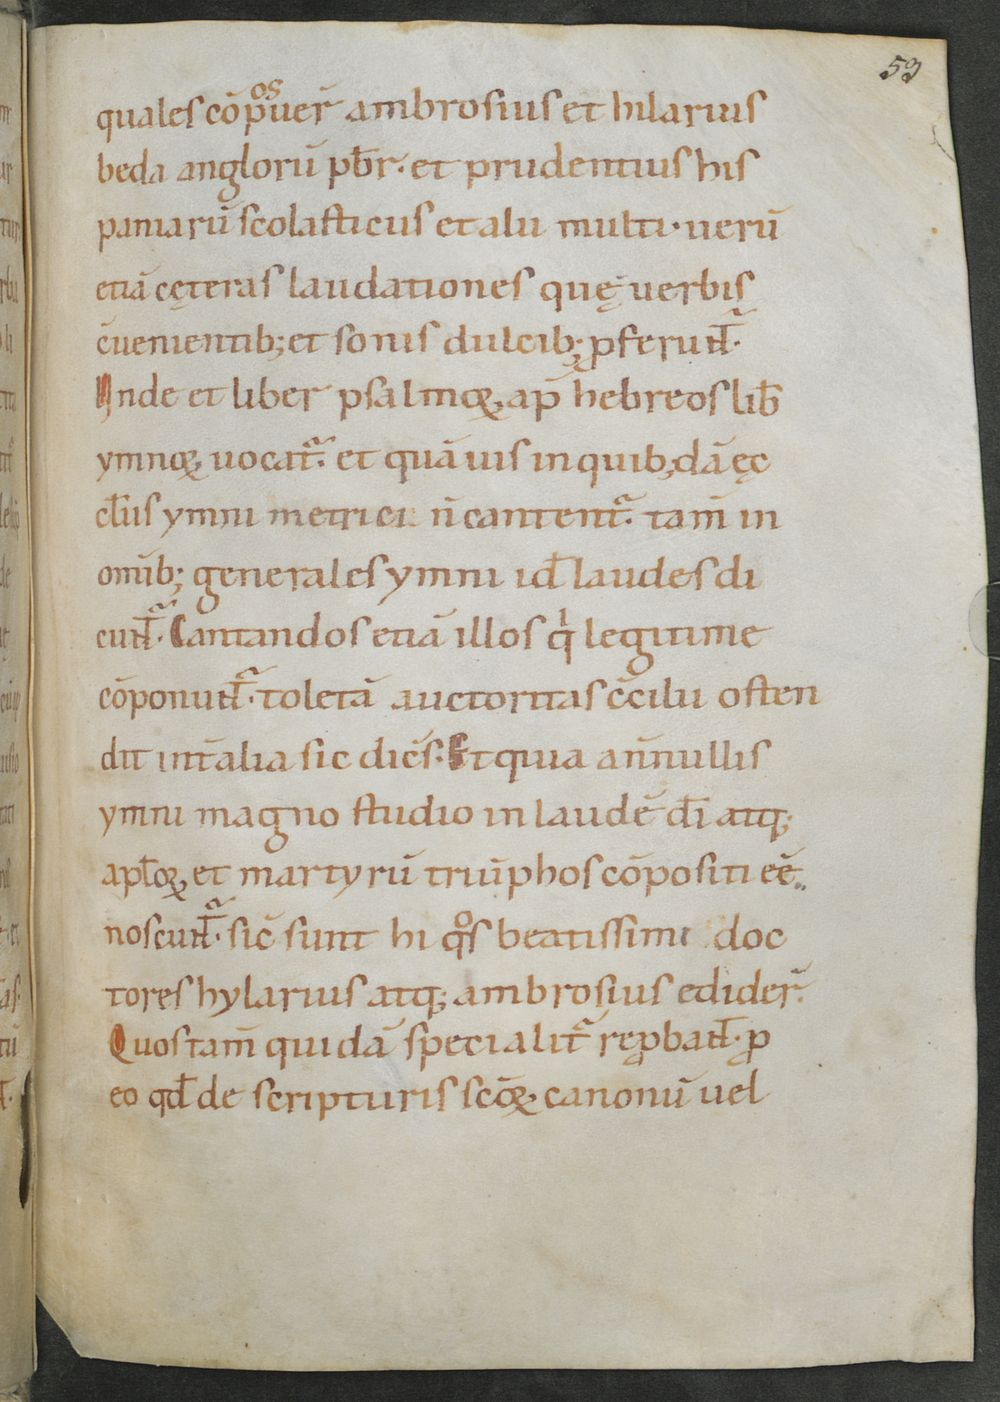 53
quales cōpuer̄ ambrosius et hilarius
os
beda anglorū pb̄r· et prudentius his
paniarū scolasticus et alii multi· uerū
etiā cęteras laudationes quę uerbis
c̄uenientib; et sonis dulcib; ꝓferunt̄·
Vnde et liber psalmoꝝ, ap̄ hebreos lib̄
ymnoꝝ, uocat̄· et quāuis in quib;dā ęc
cl̄iis ymni metrici n̄ cantent̄· tam̄ in
om̄ib; generales ymni id̄ laudes di
cunt̄· Cantandos etiā illos qͥ legitime
cōponunt̄· toletā auctoritas c̄cilii osten
dit int̄ alia sic dicēs· Et quia an̄nullis
ymni magno studio in laudē dī atq;
apl̄oꝝ, et martyrū triūphos cōpositi eē
noscunt̄· sic̄ sunt hi qͦs beatissimi doc
tores hylarius atq; ambrosius edider̄·
Quos tam̄ quidā specialit̄ reꝓbant̄· ꝓ
eo qd̄ de scripturis sc̄oꝝ, canonū uel